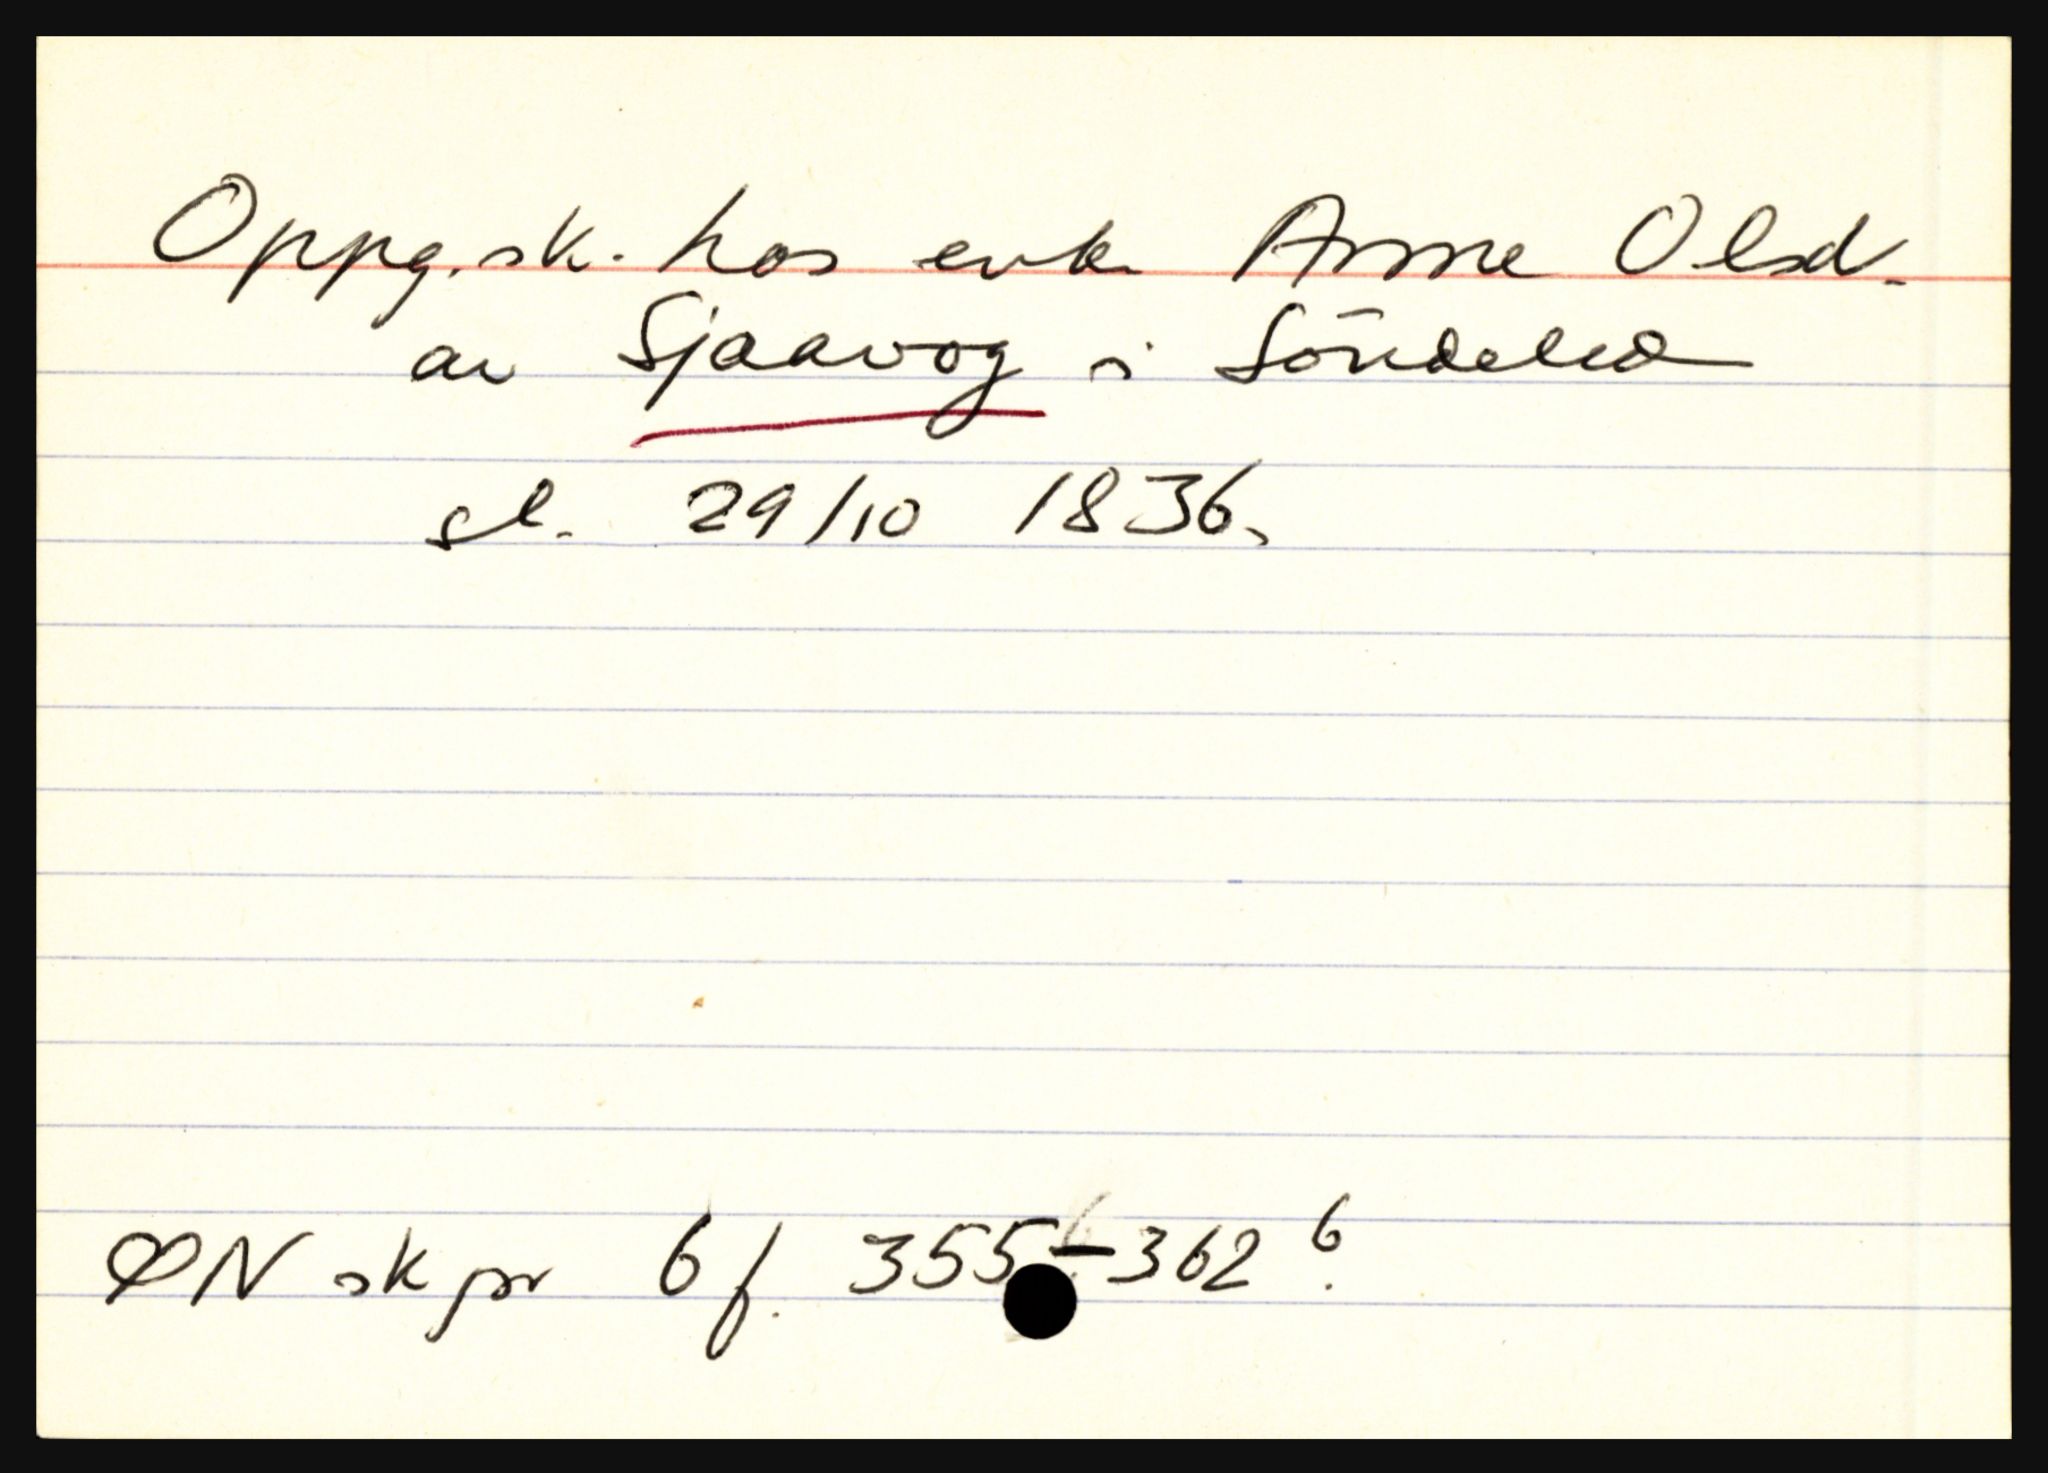 Oppg.sk. hos enk. Anne Olsd.
av Sjaavog i Söndeled
sl. 29/10 1836.
ØN sk pr 6 f. 355-362 6.